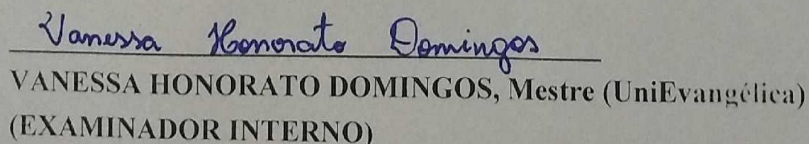 Vanessa Honorato Domingos
VANESSA HONORATO DOMINGOS, Mestre (UniEvangélica)
(EXAMINADOR INTERNO)